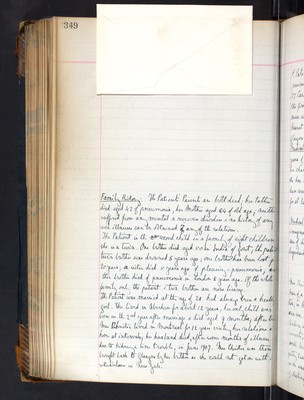 349
Family History. The Patient's Parents are both dead, her Father
died aged 47 of pneumonia, her Mother aged 64 of old age, neither
suffered from any mental or nervous disorder & no history of any
such illness can be obtained of any of the relations.
The Patient is the second child in a family of eight children
she is a twin. One brother died aged
twin brother was drowned 8 years ago, one brother has been lost for
20 years, a sister died 5 years ago of pleurisy, pneumonia, an-
other brother died of pneumonia in London 6 years ago. Of the whole
family only the patient & two brothers are now living.
The Patient was married at the age of 20 & had always been a healthy
girl. She lived in Aberdeen for about 12 years, her only child was
born in the 2nd year after marriage & died aged 9 months, after this
she lived in Montreal for 18 years
her husband died, after some months of illness
due to kidney & liver trouble, in June 1907. The Patient was then
brought back to Glasgow by her brother as she could not get on with
relations in New York.